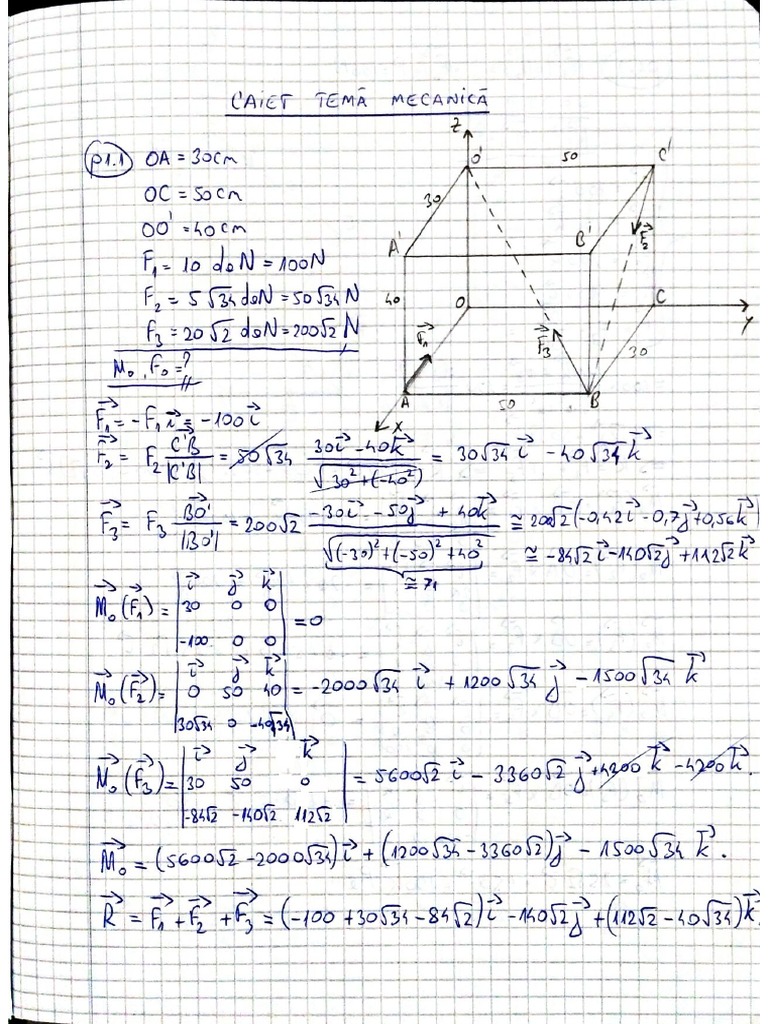 CAIET TEMĂ MECANICĂ
p1.1 OA = 30cm
OC = 50cm
OO' = 40cm
F₁ = 10 daN = 100N
F₂ = 5√34 daN = 50√34 N
F₃ = 20√2 daN = 200√2 N
M₀, F₀ = ?
Z
O'
50
C'
30
A'
B'
F⃗₂
40
O
C
Y
F⃗₁
F⃗₃
30
A
50
B
X
F⃗₁ = -F₁ i⃗ = -100 i⃗
F⃗₂ = F₂ C'B⃗/|C'B| = 50√34 (30i⃗ - 40k⃗)/√(30² + (-40²)) = 30√34 i⃗ - 40√34 k⃗
F⃗₃ = F₃ BO'⃗/|BO'| = 200√2 (-30i⃗ - 50j⃗ + 40k⃗)/√((-30)² + (-50)² + 40²) ≅ 200√2(-0,42i⃗ - 0,7j⃗ + 0,56k⃗)
≅ 71 ≅ -84√2 i⃗ - 140√2 j⃗ + 112√2 k⃗
M⃗₀(F⃗₁) = | i⃗ j⃗ k⃗ |
30 0 0
-100 0 0 = 0
M⃗₀(F⃗₂) = | i⃗ j⃗ k⃗ |
0 50 40 = -2000√34 i⃗ + 1200√34 j⃗ - 1500√34 k⃗
30√34 0 -40√34
M⃗₀(F⃗₃) = | i⃗ j⃗ k⃗ |
30 50 0 = 5600√2 i⃗ - 3360√2 j⃗ + 4200 k⃗ - 4200 k⃗.
-84√2 -140√2 112√2
M⃗₀ = (5600√2 - 2000√34) i⃗ + (1200√34 - 3360√2) j⃗ - 1500√34 k⃗.
R⃗ = F⃗₁ + F⃗₂ + F⃗₃ = (-100 + 30√34 - 84√2) i⃗ - 140√2 j⃗ + (112√2 - 40√34) k⃗